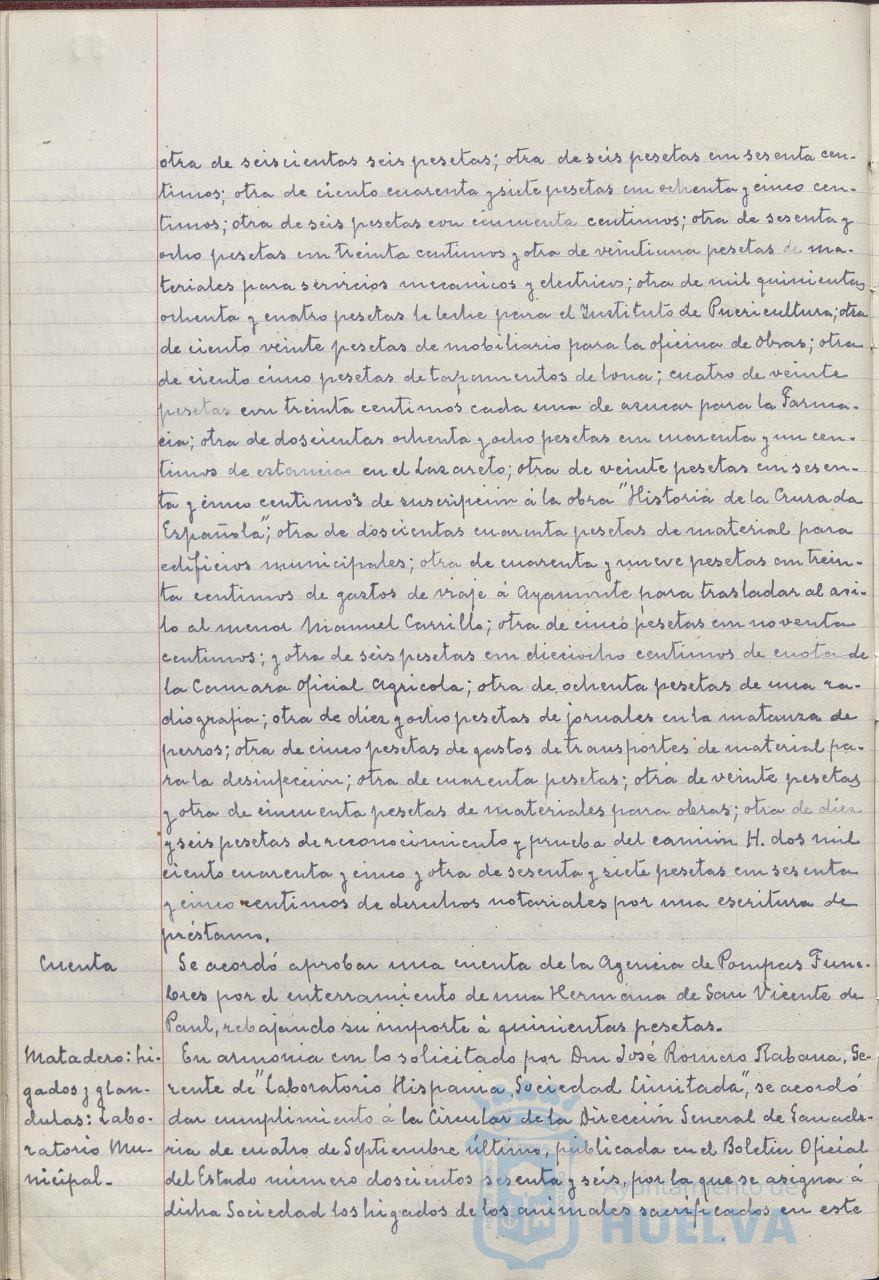 otra de seiscientas seis pesetas; otra de seis pesetas con sesenta cen-
timos; otra de ciento cuarenta y siete pesetas con ochenta y cinco cen-
timos; otra de seis pesetas con cincuenta centimos; otra de sesenta y
ocho pesetas con treinta centimos y otra de veintiuna pesetas de ma-
teriales para servicios mecanicos y electricos; otra de mil quinientas
ochenta y cuatro pesetas de leche para el Instituto de Puericultura; otra
de ciento veinte pesetas de mobiliario para la oficina de Obras; otra
de ciento cinco pesetas de tapamentos de lona; cuatro de veinte
pesetas con treinta centimos cada una de azucar para la Farma-
cia; otra de doscientas ochenta y ocho pesetas con cuarenta y un cen-
timos de estancias en el Lazareto; otra de veinte pesetas con sesen-
ta y cinco centimos de suscripción á la obra "Historia de la Cruzada
Española"; otra de doscientas cuarenta pesetas de material para
edificios municipales; otra de cuarenta y nueve pesetas con trein-
ta centimos de gastos de viaje á Ayamonte para trasladar al asi-
lo al menor Manuel Carrillo; otra de cinco pesetas con noventa
centimos; y otra de seis pesetas con dieciocho centimos de cuota de
la Camara Oficial Agricola; otra de ochenta pesetas de una ra-
diografia; otra de diez y ocho pesetas de jornales en la matanza de
perros; otra de cinco pesetas de gastos de transportes de material pa-
ra la desinfección; otra de cuarenta pesetas; otra de veinte pesetas
y otra de cincuenta pesetas de materiales para obras; otra de diez
y seis pesetas de reconocimiento y prueba del camión H. dos mil
ciento cuarenta y cinco y otra de sesenta y siete pesetas con sesenta
y cinco centimos de derechos notariales por una escritura de
préstamo.
Cuenta Se acordó aprobar una cuenta de la Agencia de Pompas Fune-
bres por el enterramiento de una Hermana de San Vicente de
Paul, rebajando su importe á quinientas pesetas.
Matadero: hi- En armonia con lo solicitado por Don José Romero Rabana, Ge-
gados y glan- rente de "Laboratorio Hispania, Sociedad Limitada", se acordó
dulas: Labo- dar cumplimiento á la Circular de la Dirección General de Ganade-
ratorio Mu- ria de cuatro de Septiembre último, publicada en el Boletin Oficial
nicipal.- del Estado número doscientos sesenta y seis, por la que se asigna á
dicha Sociedad los higados de los animales sacrificados en este
Ayuntamiento de
HUELVA